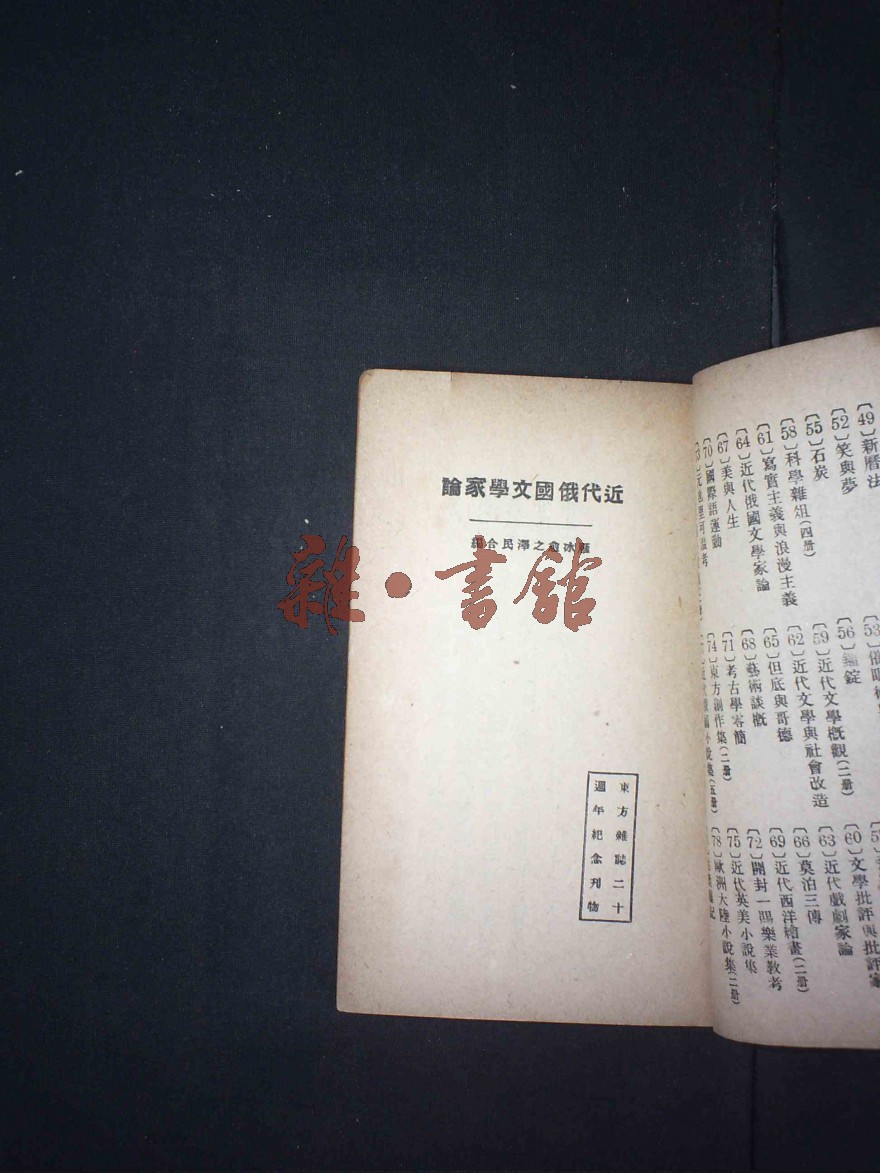 近代俄國文學家論
冰愈之澤民合
東方雜誌二十
週年紀念刊物
雜·書館
〔49〕新曆法
〔52〕笑與夢
〔55〕石炭
〔58〕科學雜俎(四册)
〔61〕寫實主義與浪漫主義
〔64〕近代俄國文學家論
〔67〕美與人生
〔70〕國際語運動
〔56〕鐳錠
〔59〕近代文學概觀(二册)
〔62〕近代文學與社會改造
〔65〕但底與哥德
〔68〕藝術談概
〔71〕考古學零簡
〔74〕東方創作集(二册)
〔60〕文學批評與批評家
〔63〕近代戲劇家論
〔66〕莫泊三傳
〔69〕近代西洋繪畫(二册)
〔72〕開封一賜樂業教考
〔75〕近代英美小說集
〔78〕歐洲大陸小說集(二册)